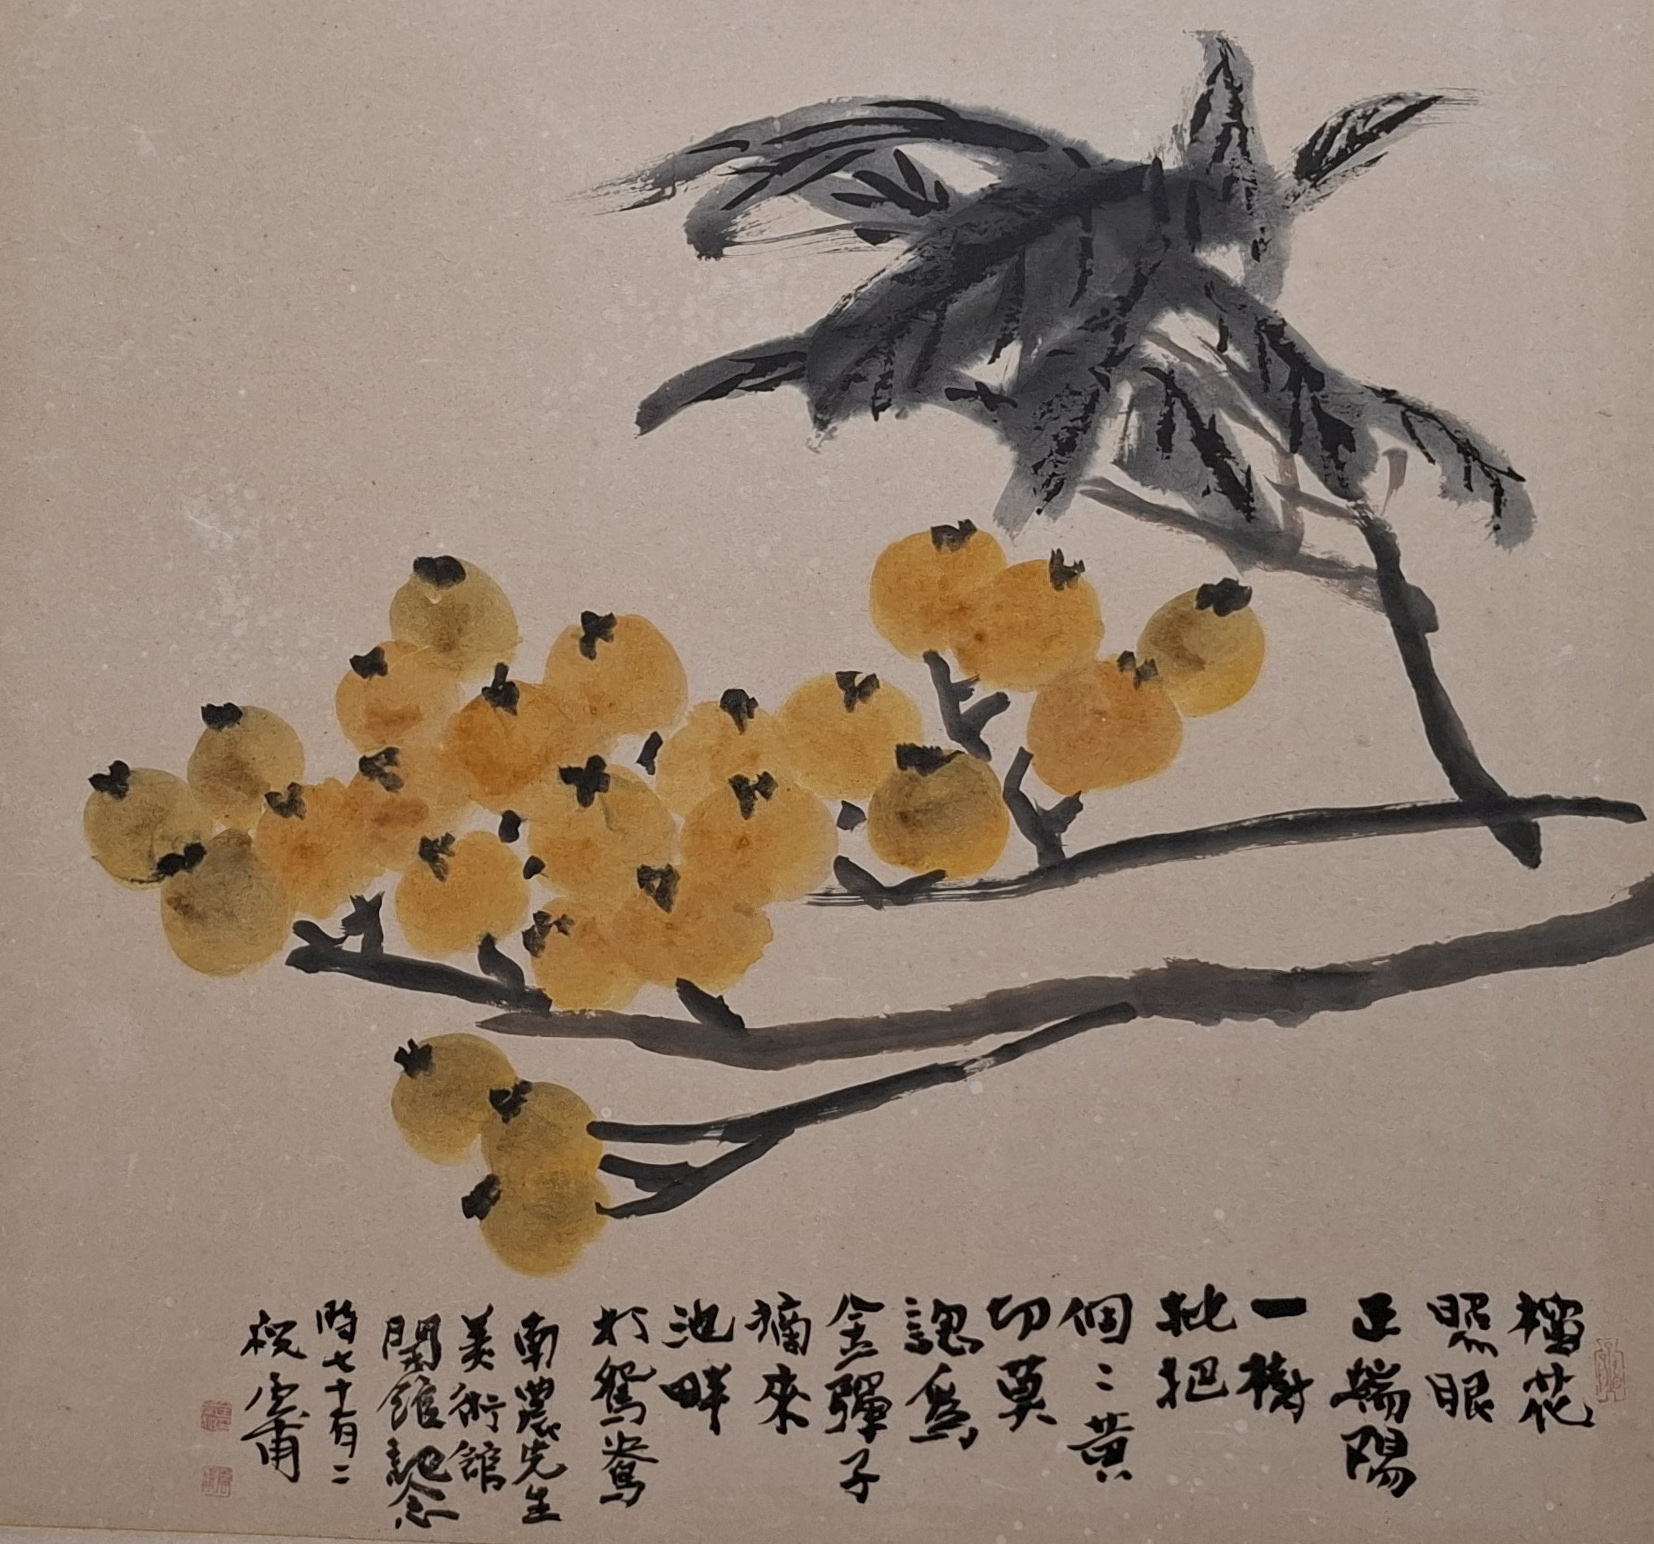 橊花
照眼
正端陽
一樹
枇杷
個〻黃
切莫
認爲
金彈子
摘來
池畔
打鴛鴦
南農先生
美術館
開館記念
時七十有二
祝 甫